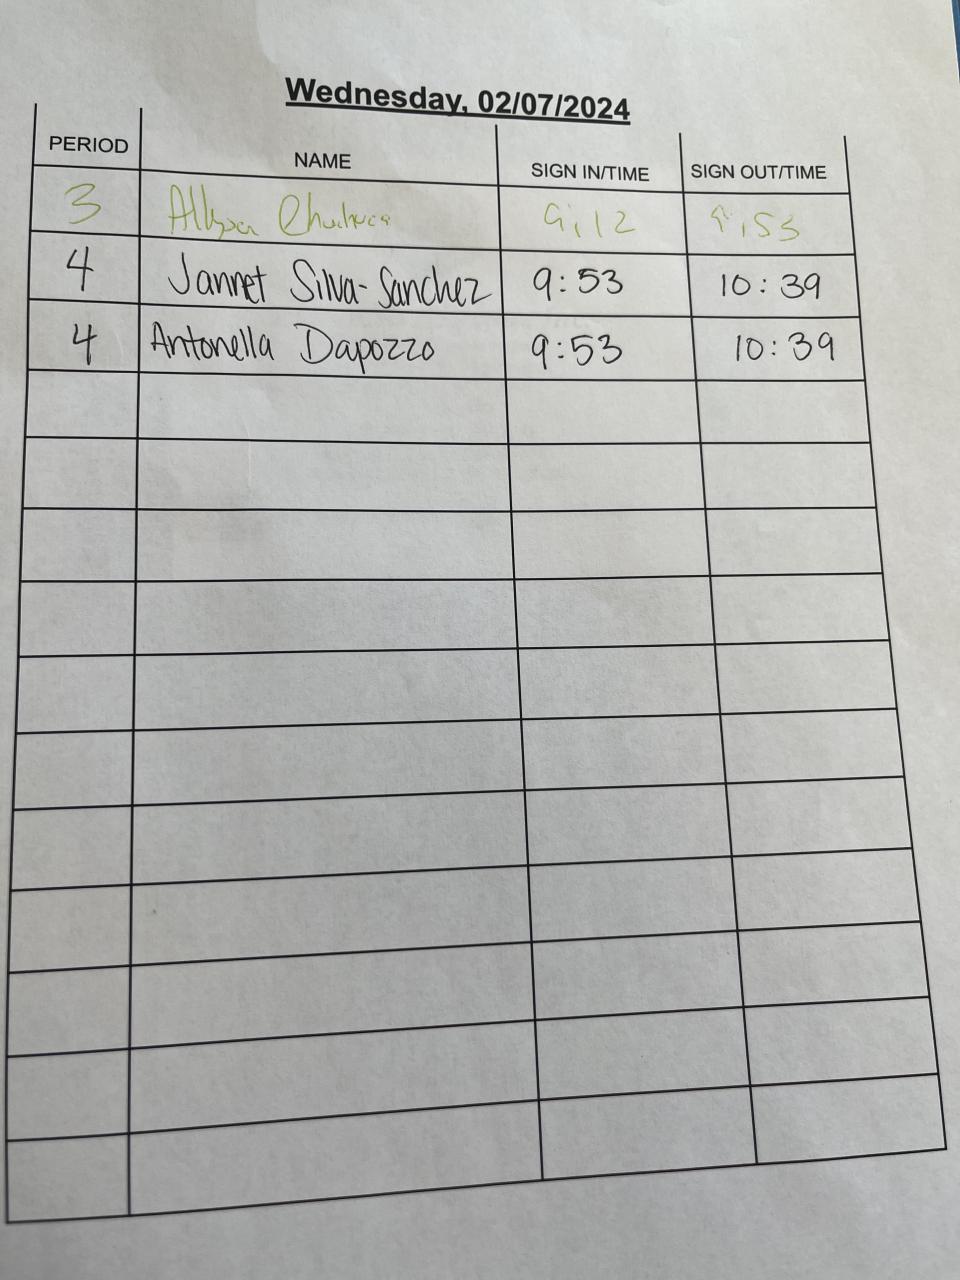 Wednesday, 02/07/2024
PERIOD NAME SIGN IN/TIME SIGN OUT/TIME
3 9:12 9:53
4 Jannet Silva-Sanchez 9:53 10:39
4 Antonella Dapozzo 9:53 10:39